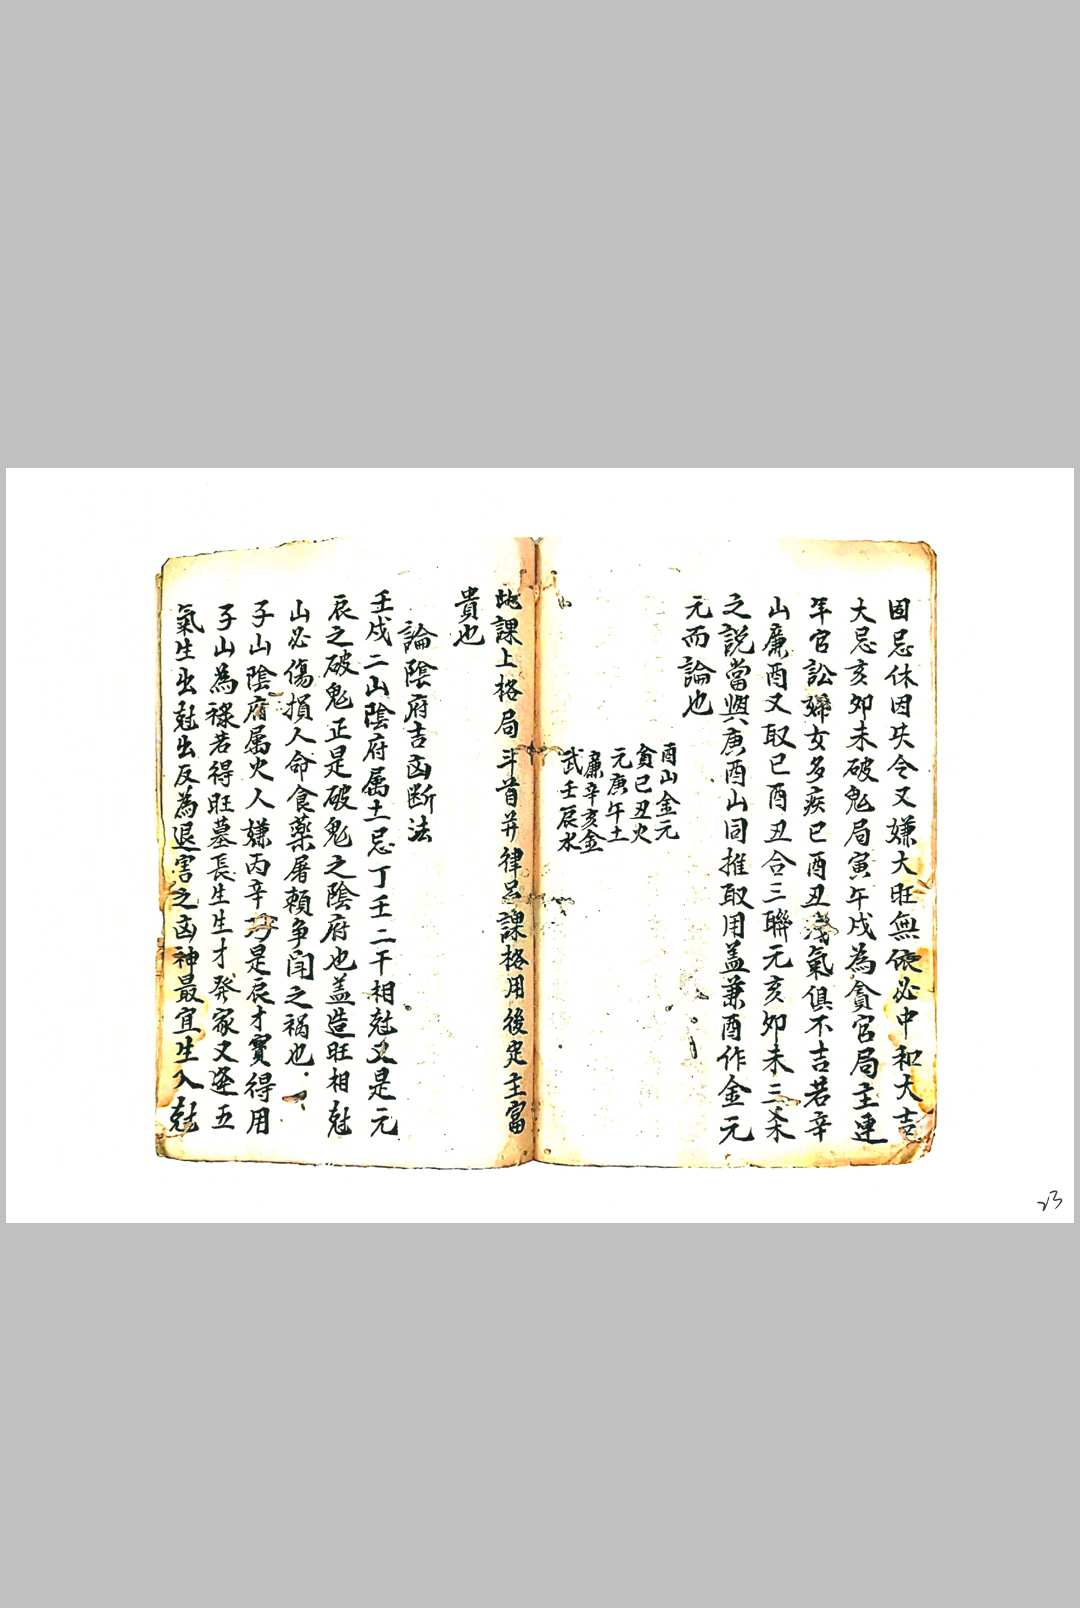 固忌休因失令又嫌大旺無依必中和大吉
大忌亥卯未破鬼局寅午戌為貪官局主連
年官訟婦女多疾巳酉丑洩氣俱不吉若辛
山廉酉又取巳酉丑合三聯元亥卯未三
之說當與庚酉山同推取用盖兼酉作金元
元而論也
酉山金元
貪巳丑火
元庚午土
廉辛亥金
武壬辰水
此課上格局斗首并律呂課格用後定主富
貴也
論陰府吉凶断法
壬戌二山陰府属土忌丁壬二干相尅又是元
辰之破鬼正是破鬼之陰府也盖造旺相尅
山必傷損人命食藥屠賴争鬥之禍也
子山陰府属火人嫌丙辛是辰才寳得用
子山為祿若得旺墓長生生才發家又逢五
氣生出尅出反為退害之凶神最宜生入尅
23